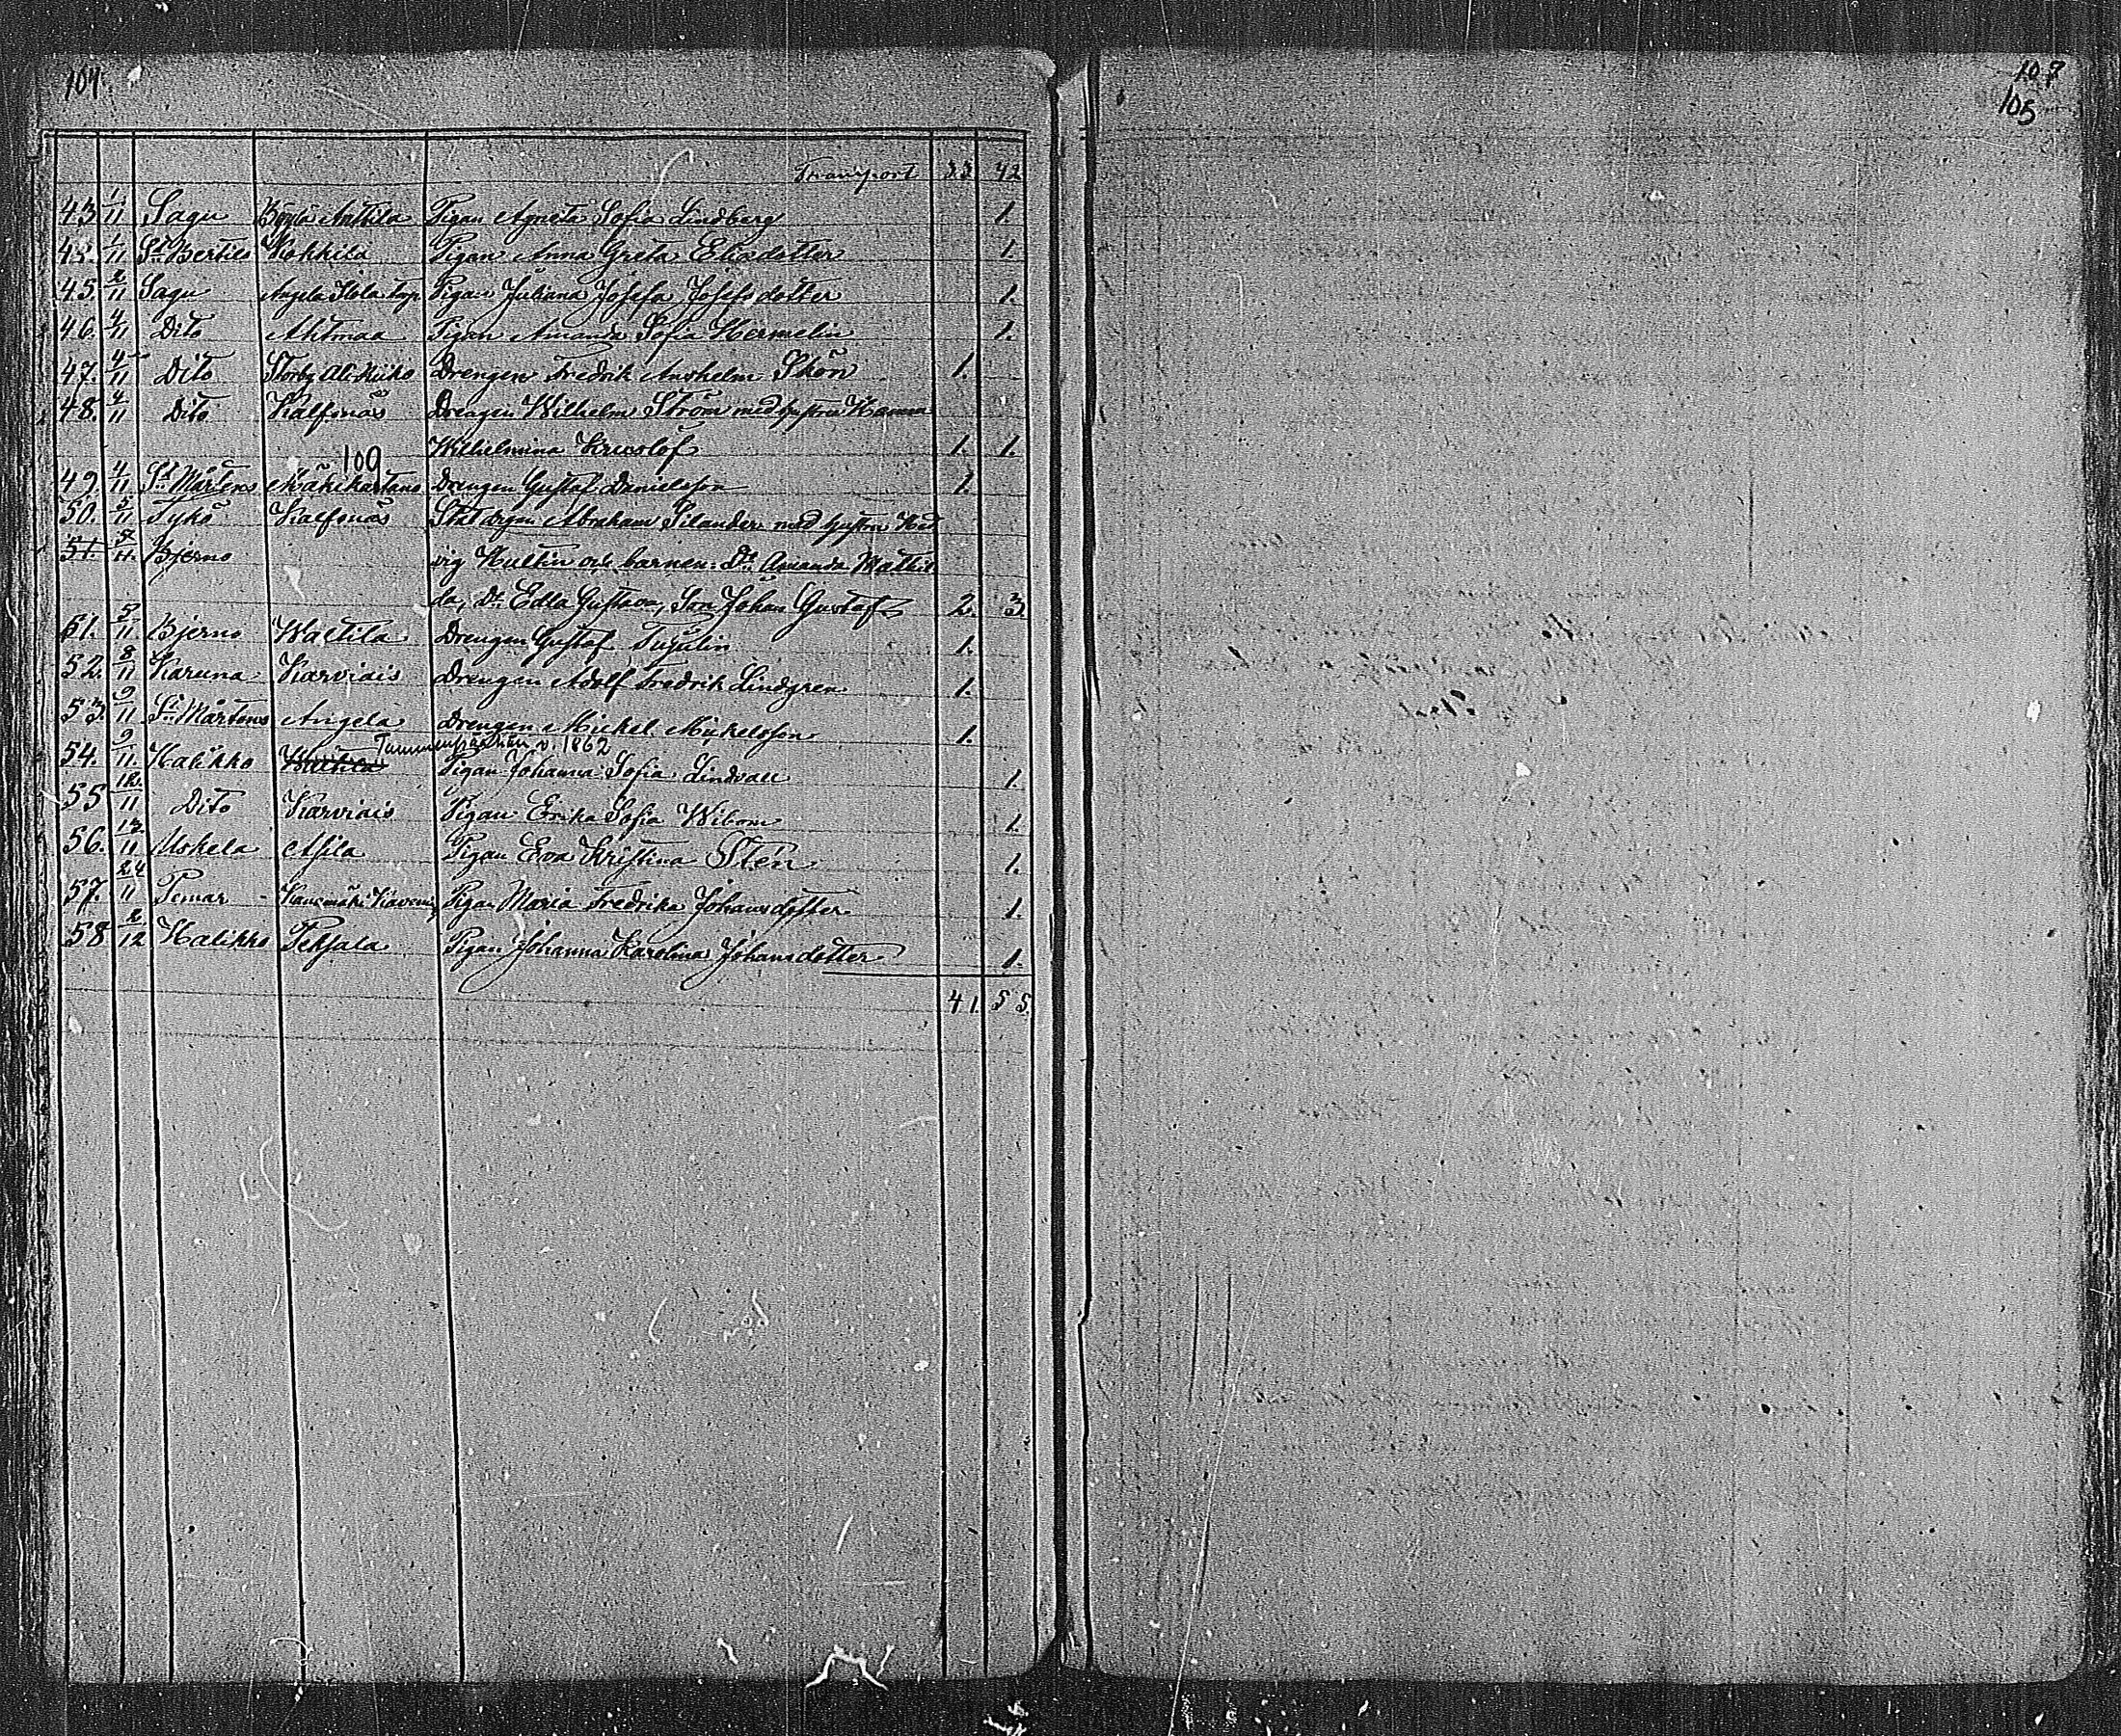 107.
Transport 33 42
43. 1/11 Sagu Pöylä Anttila Pigan Agneta Sofia Lindberg 1.
43. 1/11 St. Bertils Kokkila Pigan Anna Greta Elisdotter 1.
45. 2/11 Sagu Angela Torp Pigan Juliana Josefa Josefsdotter 1.
46. 4/11 Dito Ahtmaa Pigan Amanda Sofia Hermelin 1.
47. 4/11 Dito Storby Ali Kuko Drengen Fredrik Anshelm Skön 1.
48. 4/11 Dito Kalfsnäs Drengen Wilhelm Ström med hustru Hanna
Wilhelmina 1. 1.
100
49. 4/11 St. Mårtens Mäkikartano Drengen Gustaf Danielsson 1.
50. 5/11 Tykö Kalfsnäs Statdrgen Abraham Silander med hustru Hed
51. 5/11. Bjerno vig Hultin och barnen: Dr. Amanda Mathil
da, Dr. Edla Gustava, Son Johan Gustaf 2. 3.
51. 5/11. Bjerno Waltila Drengen Gustaf Tujulin 1.
52. 8/11 Karuna Karviais Drengen Adolf Fredrik Lindgren 1.
53 9/11 St. Mårtens Angela Drengen Mickel Mickelsson 1.
v. 1862
54. 9/11. Halikko Pigan Johanna Sofia Lindvall 1.
55 12./11 Dito Karviais Pigan Erika Sofia Wibom 1.
56. 12/11 Uskela Asila Pigan Eva Kristina Stén 1.
57. 24/11 Pemar Pigan Maria Fredrika Johansdotter 1.
58 2/12 Halikko Peksala Pigan Johanna Karolina Johansdotter 1.
41. 55.
107
105